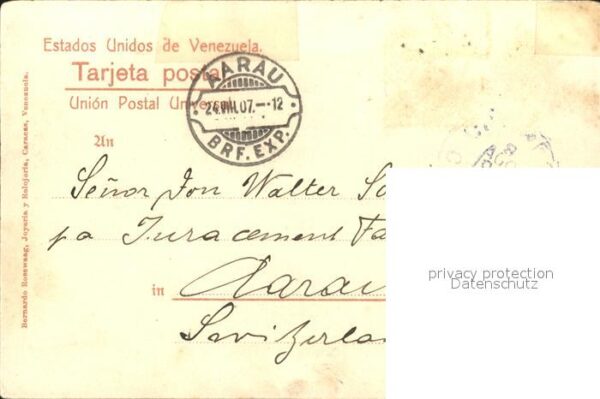 Estados Unidos de Venezuela.
Tarjeta postal
Unión Postal Universal
AARAU
24.VIII.07.–12
BRF. EXP.
An
Señor Don Walter
pa Juracement
in Aarau
Bernardo Rosswaag, Joyeria y Relojeria, Caracas, Venezuela.
privacy protection
Datenschutz